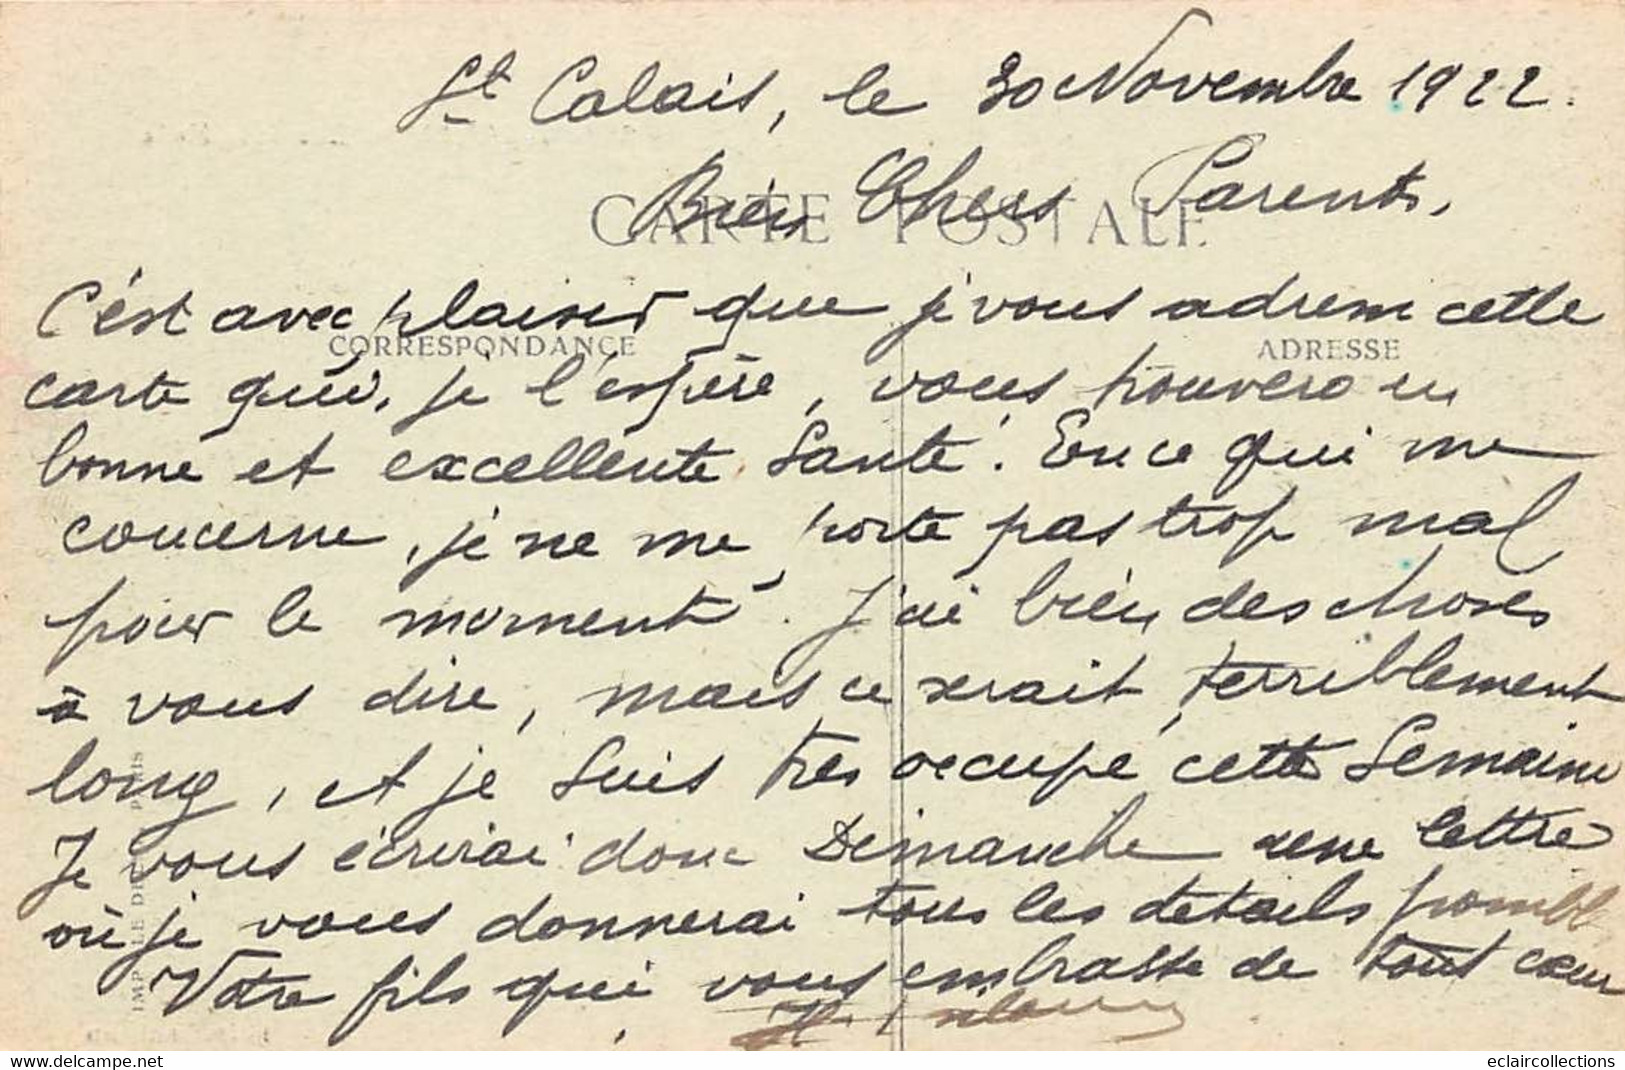 St Calais, le 30 Novembre 1922.
CARTE POSTALE
Bien Chers Parents,
C'est avec plaisir que je vous adresse cette
CORRESPONDANCE
ADRESSE
carte qui, je l'espère, vous trouvera en
bonne et excellente Santé. En ce qui me
concerne, je ne me porte pas trop mal
pour le moment. J'ai bien des choses
à vous dire, mais ce serait terriblement
long, et je suis très occupé cette Semaine
Je vous écrirai donc Dimanche une lettre
où je vous donnerai tous les détails possibl
Votre fils qui vous embrasse de tout cœur
IMP. LE PARIS
www.delcampe.net
eclaircollections